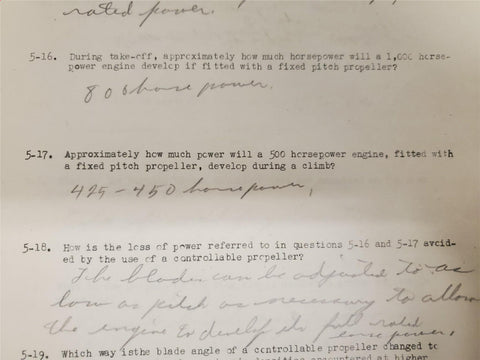 rated power.
5-16. During take-off, approximately how much horsepower will a 1,000 horse-
power engine develop if fitted with a fixed pitch propeller?
800 horse power.
5-17. Approximately how much power will a 500 horsepower engine, fitted with
a fixed pitch propeller, develop during a climb?
425-450 horsepower,
5-18. How is the loss of power referred to in questions 5-16 and 5-17 avoid-
ed by the use of a controllable propeller?
The blades can be adjusted to as
low as pitch as necessary to allow
the engine to develop its full rated
horse power.
5-19. Which way isthe blade angle of a controllable propeller changed to
encountered at higher